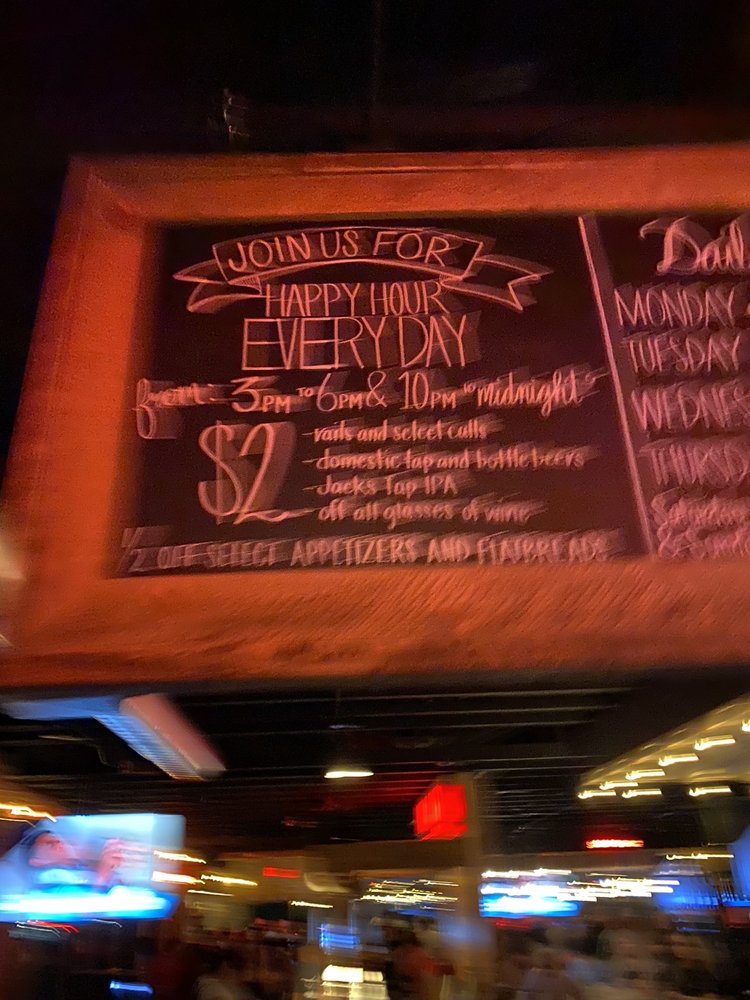 JOIN US FOR
HAPPY HOUR
EVERY DAY
from: 3PM TO 6PM & 10PM to midnight
$2
-rails and select calls
-domestic tap and bottle beers
-Jacks Tap IPA
-off all glasses of wine
1/2 OFF SELECT APPETIZERS AND FLATBREADS
Dail
MONDAY
TUESDAY
WEDNES
THURSDA